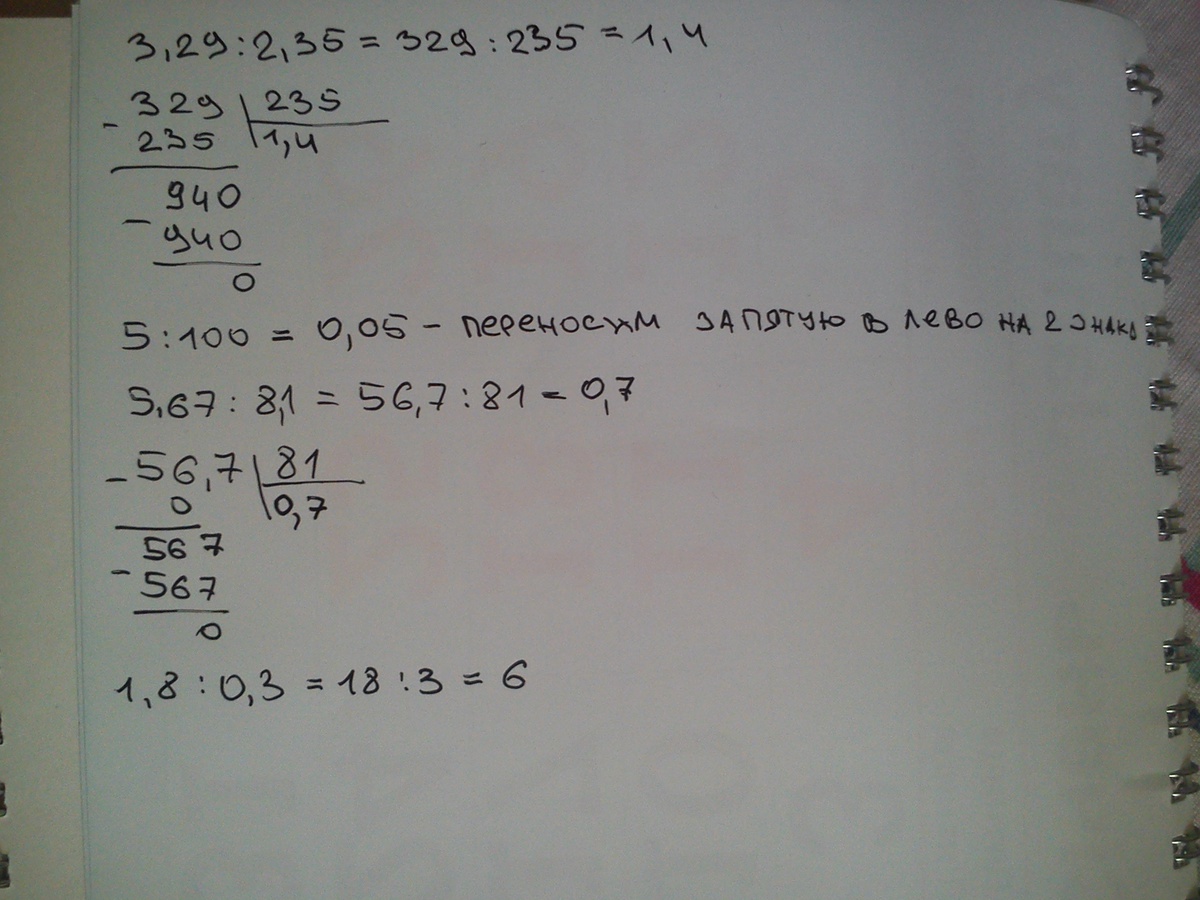 3,29:2,35 = 329:235 = 1,4
- 329 235
235 1,4
940
- 940
0
5:100 = 0,05 - переносим запятую в лево на 2 знака
5,67: 8,1 = 56,7:81 = 0,7
- 56,7 81
0 0,7
567
- 567
0
1,8:0,3 = 18:3 = 6